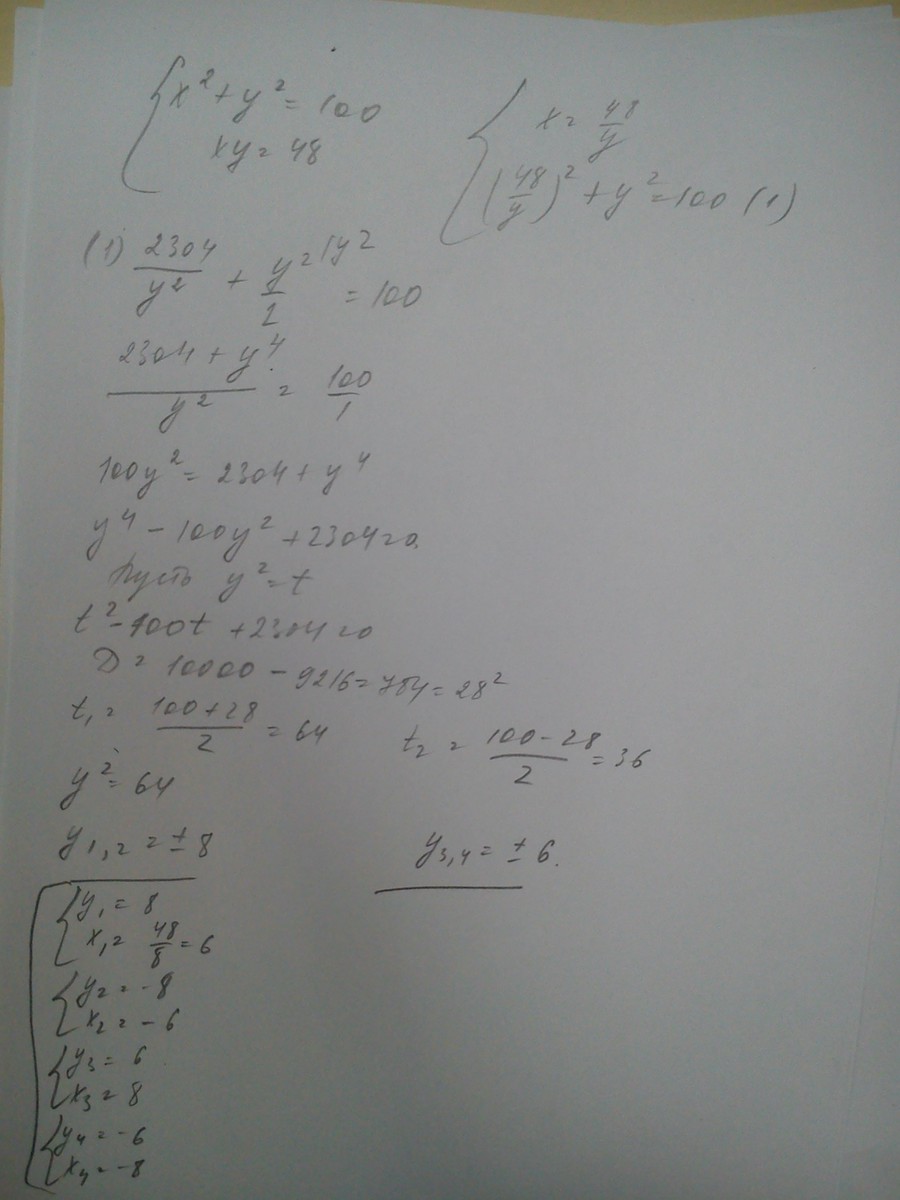 x² + y² = 100
xy = 48
x = 48/y
(48/y)² + y² = 100 (1)
(1) 2304/y² + y²/1 |y² = 100
(2304 + y⁴)/y² = 100/1
100y² = 2304 + y⁴
y⁴ - 100y² + 2304 = 0
Пусть y² = t
t² - 100t + 2304 = 0
D = 10000 - 9216 = 784 = 28²
t₁ = (100 + 28)/2 = 64
t₂ = (100 - 28)/2 = 36
y² = 64
y₁,₂ = ± 8
y₃,₄ = ± 6.
y₁ = 8
x₁ = 48/8 = 6
y₂ = -8
x₂ = -6
y₃ = 6
x₃ = 8
y₄ = -6
x₄ = -8